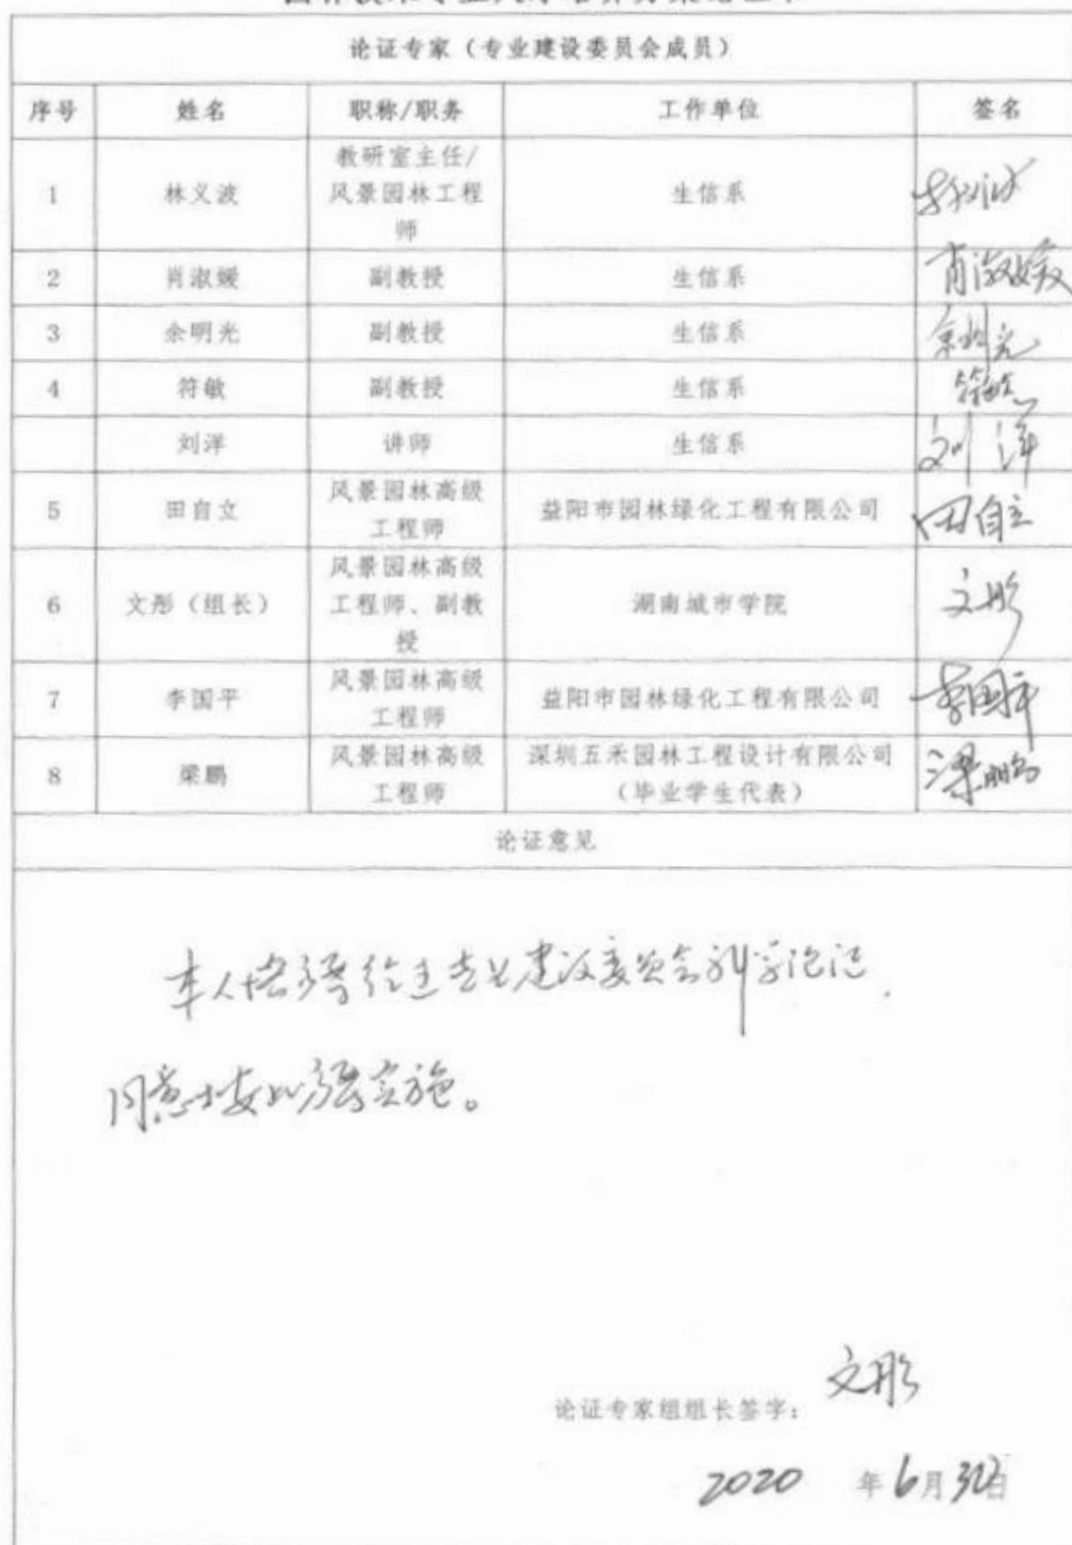 论证专家（专业建设委员会成员）
序号 姓名 职称/职务 工作单位 签名
1 林义波 教研室主任/风景园林工程师 生信系
2 肖淑媛 副教授 生信系 肖淑媛
3 余明光 副教授 生信系 余明光
4 符敏 副教授 生信系 符敏
刘洋 讲师 生信系 刘洋
5 田自立 风景园林高级工程师 益阳市园林绿化工程有限公司 田自立
6 文彤（组长） 风景园林高级工程师、副教授 湖南城市学院 文彤
7 李国平 风景园林高级工程师 益阳市园林绿化工程有限公司 李国平
8 梁鹏 风景园林高级工程师 深圳五禾园林工程设计有限公司（毕业学生代表） 梁鹏
论证意见
本人培方案经过专业建设委员会科学论证.
同意按此方案实施。
论证专家组组长签字： 文彤
2020 年 6 月 日